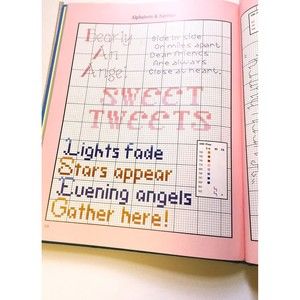 Alphabets & Sayings
Nearly
An
Angel
Side by side
Or miles apart
Dear friends
Are always
Close at heart.
SWEET
TWEETS
Lights fade
Stars appear
Evening angels
Gather here!